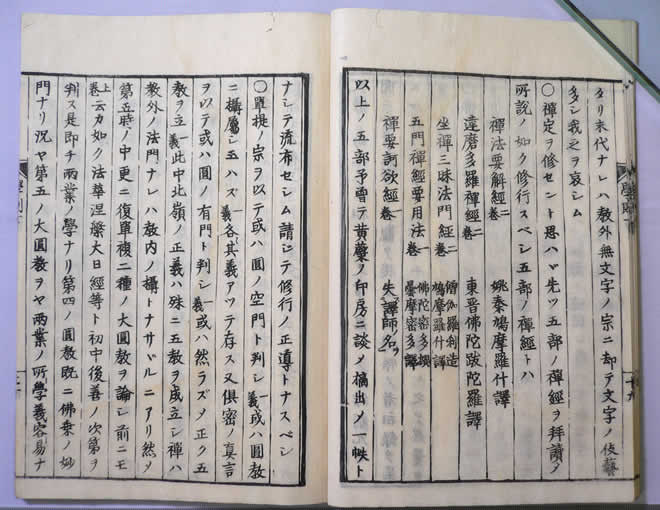 タリ末代ナレハ教外無文字ノ宗ニ却テ文字ノ伎藝
多シ我之ヲ哀シム
〇禪定ヲ修セント思ハヽ先ツ五部ノ禪經ヲ拜讀シテ
所說ノ如ク修行スベシ五部ノ禪經トハ
禪法要解經二卷 姚秦鳩摩羅什譯
達磨多羅禪經二卷 東晉佛陀跋陀羅譯
坐禪三昧法門經二卷 僧伽羅刹造 鳩摩羅什譯
五門禪經要用法一卷 佛陀密多撰 曇摩密多譯
禪要訶欲經一卷 失譯師名
以上ノ五部予曾テ黃檗ノ印房ニ談シテ摘出シテ一帙ト
ナシテ流布セシム請シテ修行ノ正導トナスベシ
〇單提ノ宗ヲ以テ或ハ圓ノ空門ト判シ一義或ハ圓教
ニ攝屬シ玉ハズ一義各其義アツテ存ス又俱密ノ眞言
ヲ以テ或ハ圓ノ有門ト判シ一義或ハ然ラズシテ正ク五
教ヲ立一義此中北嶺ノ正義ハ殊ニ五教ヲ成立シ禪ハ
教外ノ法門ナレハ教內ノ攝トナサヾルニアリ然シテ
第五時ノ中更ニ復單複二種ノ大圓教ヲ論シ前ニモ
卷上云カ如ク法華涅槃大日經等ト初中後善ノ次第ヲ
判ス是即チ兩業ノ學ナリ第四ノ圓教既ニ佛乗ノ妙
門ナリ況ヤ第五ノ大圓教ヲヤ兩業ノ所學義容易ナ